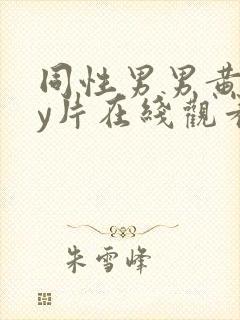 同性男男黄
y片在綫觀看
朱雪峰